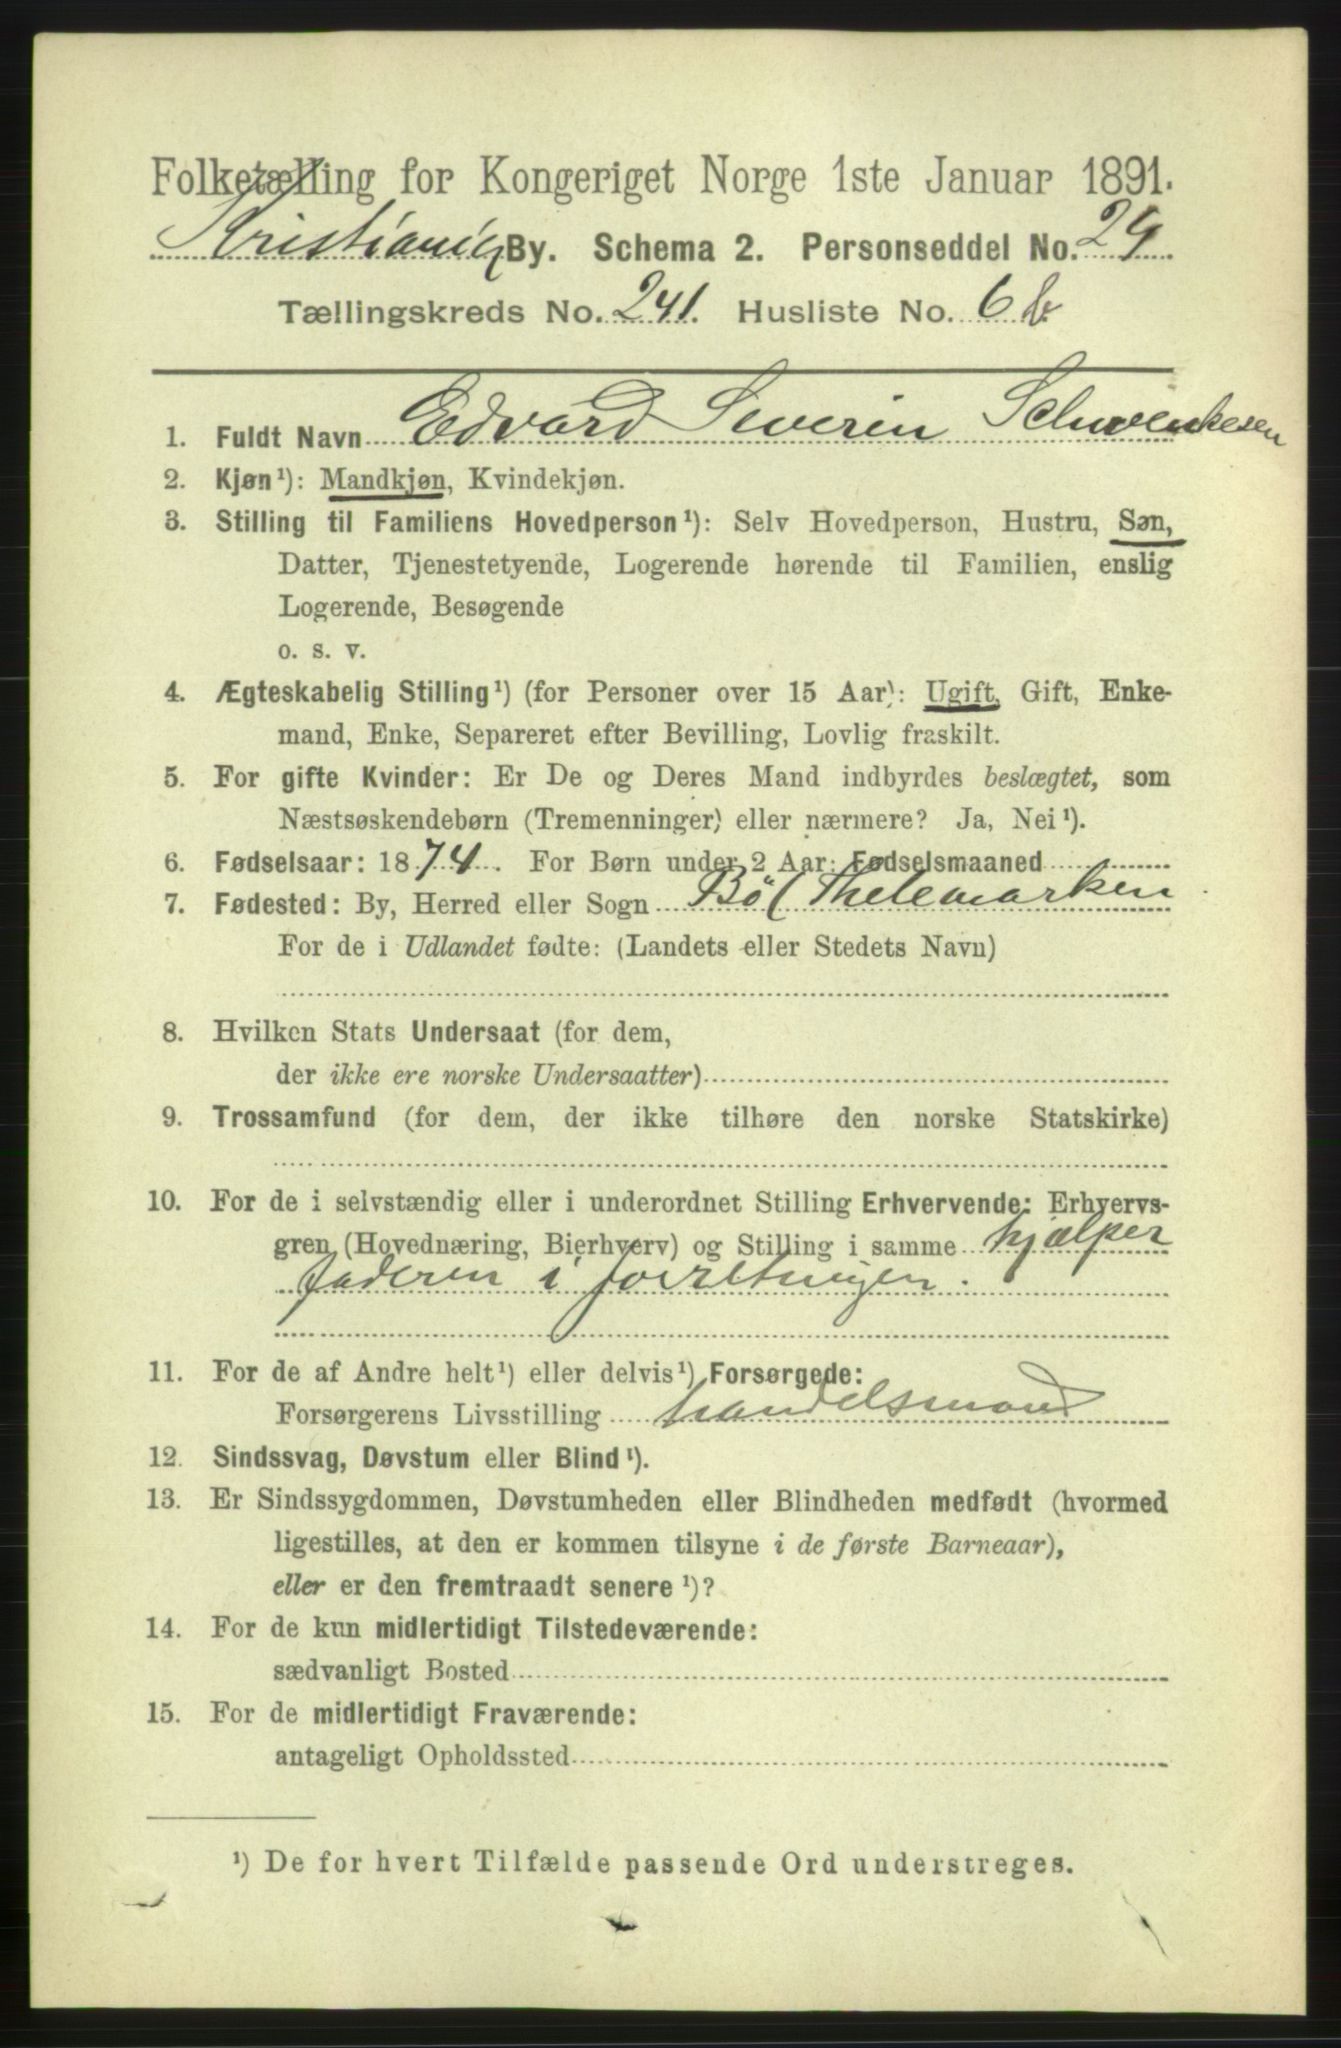 Folketælling for Kongeriget Norge 1ste Januar 1891.
Kristiania By. Schema 2. Personseddel No. 24
Tællingskreds No. 241. Husliste No. 6 b.
1. Fuldt Navn Edvard Severin Schwenkesen
2. Kjøn¹): Mandkjøn, Kvindekjøn.
3. Stilling til Familiens Hovedperson¹): Selv Hovedperson, Hustru, Søn,
Datter, Tjenestetyende, Logerende hørende til Familien, enslig
Logerende, Besøgende
o. s. v.
4. Ægteskabelig Stilling¹) (for Personer over 15 Aar): Ugift, Gift, Enke-
mand, Enke, Separeret efter Bevilling, Lovlig fraskilt.
5. For gifte Kvinder: Er De og Deres Mand indbyrdes beslægtet, som
Næstsøskendebørn (Tremenninger) eller nærmere? Ja, Nei¹).
6. Fødselsaar: 1874. For Børn under 2 Aar: Fødselsmaaned
7. Fødested: By, Herred eller Sogn Bö (Thelemarken
For de i Udlandet fødte: (Landets eller Stedets Navn)
8. Hvilken Stats Undersaat (for dem,
der ikke ere norske Undersaatter)
9. Trossamfund (for dem, der ikke tilhøre den norske Statskirke)
10. For de i selvstændig eller i underordnet Stilling Erhvervende: Erhvervs-
gren (Hovednæring, Bierhverv) og Stilling i samme hjælper
faderen i forretningen.
11. For de af Andre helt¹) eller delvis¹) Forsørgede:
Forsørgerens Livsstilling handelsmand
12. Sindssvag, Døvstum eller Blind¹).
13. Er Sindssygdommen, Døvstumheden eller Blindheden medfødt (hvormed
ligestilles, at den er kommen tilsyne i de første Barneaar),
eller er den fremtraadt senere¹)?
14. For de kun midlertidigt Tilstedeværende:
sædvanligt Bosted
15. For de midlertidigt Fraværende:
antageligt Opholdssted
¹) De for hvert Tilfælde passende Ord understreges.